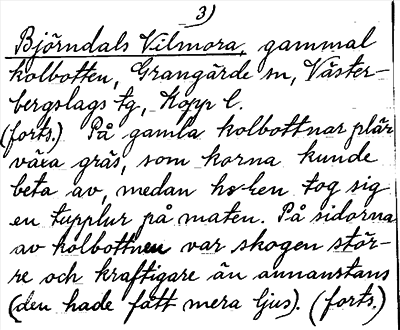 3)
Björndals Vilmora, gammal
kolbotten, Grangärde sn, Väster-
bergslags tg, Kopp l.
(forts.) På gamla kolbottnar plär
växa gräs, som korna kunde
beta av, medan herden tog sig
en tupplur på maten. På sidorna
av kolbottnen var skogen stör-
re och kraftigare än annanstans
(den hade fått mera ljus). (forts.)